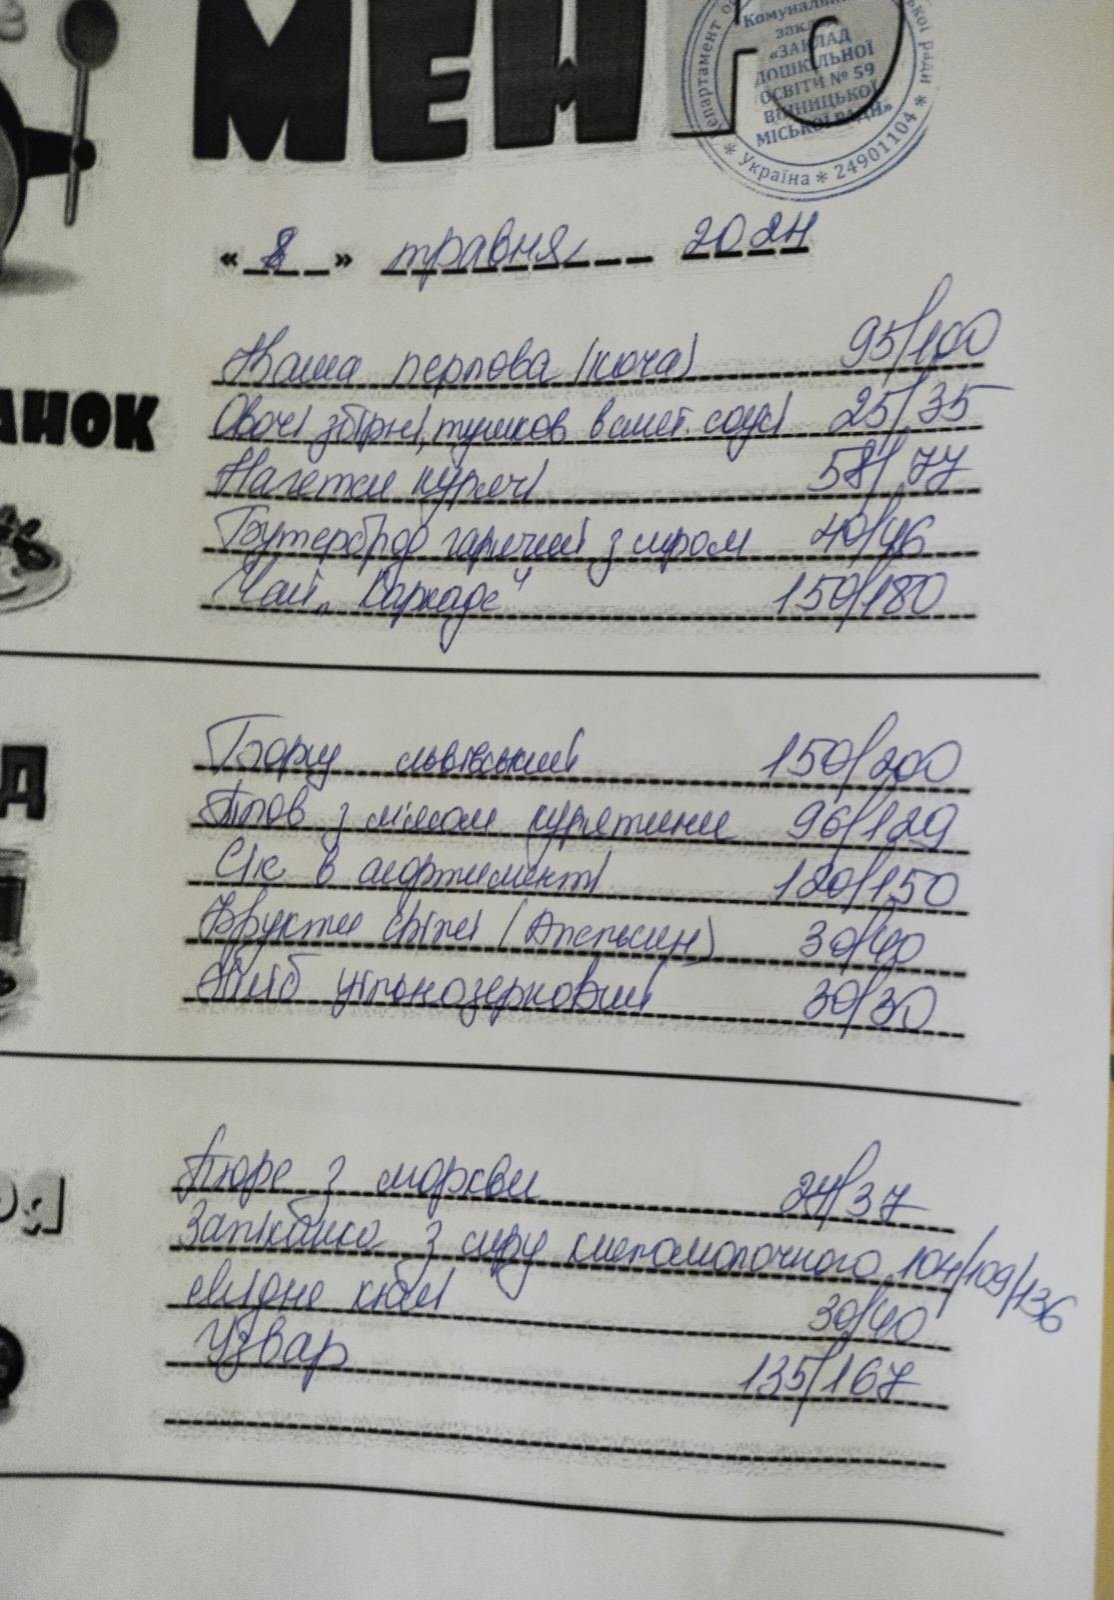 МЕНЮ
Комунальний
заклад
«ЗАКЛАД
ДОШКІЛЬНОЇ
ОСВІТИ № 59
ВІННИЦЬКОЇ
МІСЬКОЇ РАДИ»
* Україна * 24901104 *
« 8 » травня 2024
АНОК
Каша перлова (куча) 95/100
Овочі збірні, тушков в смет. соусі 25/35
Нагетси курячі 58/77
Бутерброд гарячий з сиром 40/46
Чай „Каркаде" 150/180
Д
Борщ львівський 150/200
Плов з м'ясом курятини 96/129
Сік в асортименті 120/150
Фрукти свіжі (Апельсин) 30/40
Хліб цільнозерновий 30/30
РЯ
Пюре з моркви 24/37
Запіканка з сиру кисломолочного 104/109/136
ягідне кюлі 30/40
Узвар 135/167